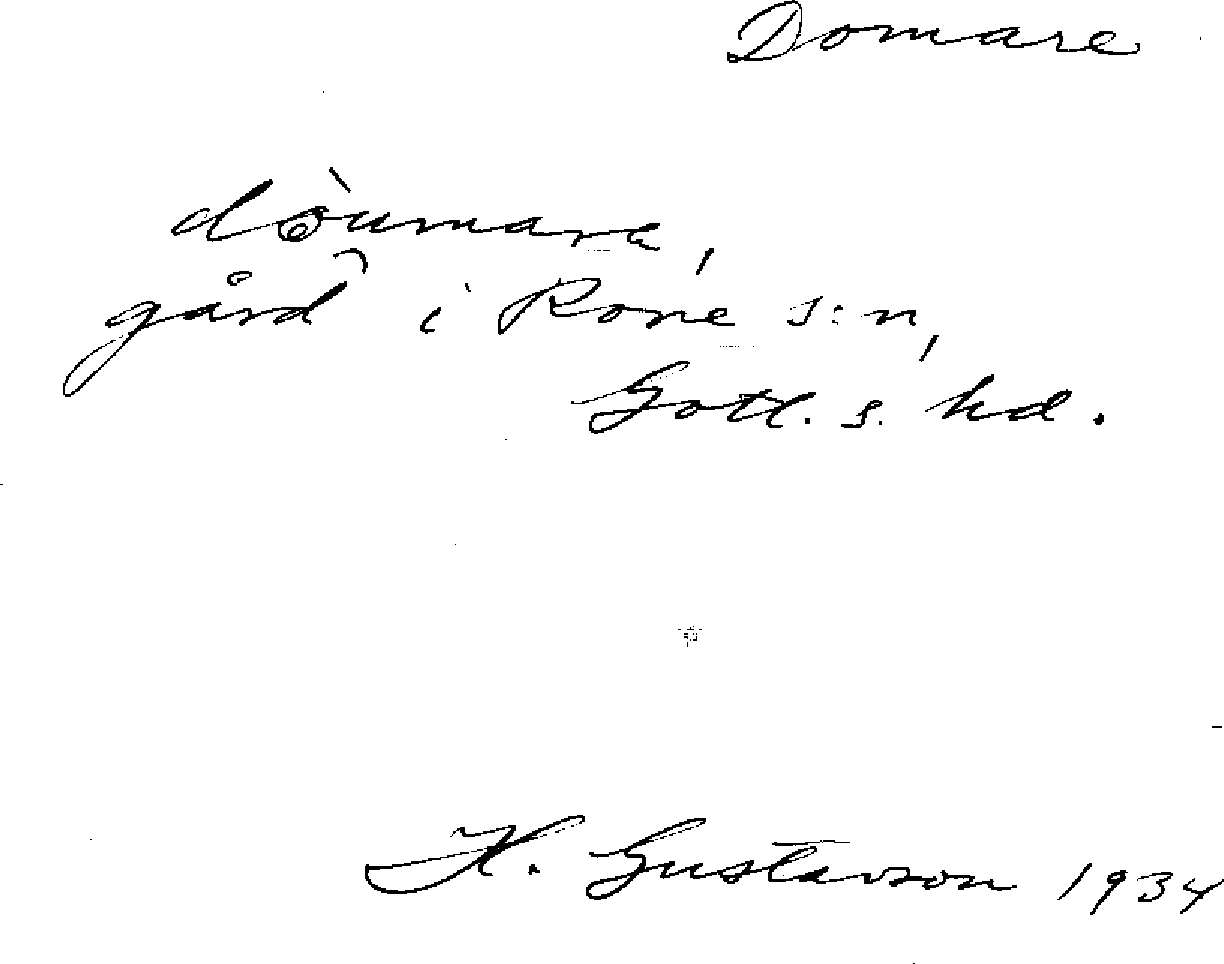 Domare
dòumarä,
gård i Rone s:n,
Gotl. s. hd.
H. Gustavson 1934